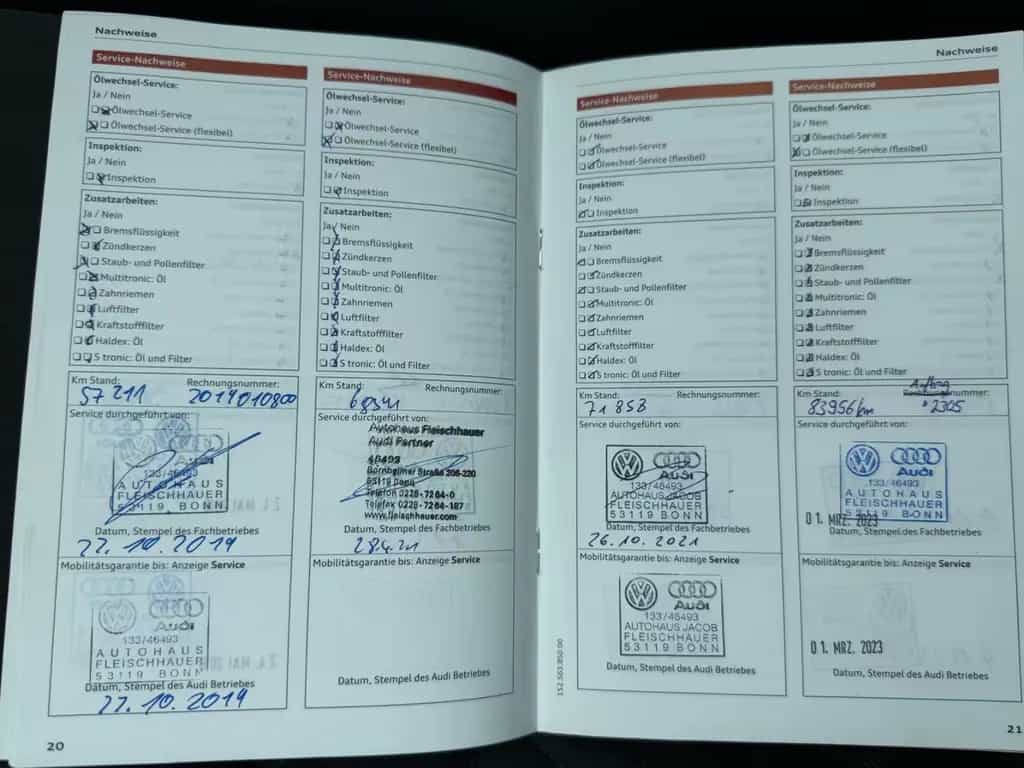 Nachweise
Service-Nachweise
Ölwechsel-Service:
Ja / Nein
Ölwechsel-Service
Ölwechsel-Service (flexibel)
Inspektion:
Ja / Nein
Inspektion
Zusatzarbeiten:
Ja / Nein
Bremsflüssigkeit
Zündkerzen
Staub- und Pollenfilter
Multitronic: Öl
Zahnriemen
Luftfilter
Kraftstofffilter
Haldex: Öl
S tronic: Öl und Filter
Km Stand: Rechnungsnummer:
57 211 2019010800
Service durchgeführt von:
133/46493
AUTOHAUS
FLEISCHHAUER
53119 BONN
Datum, Stempel des Fachbetriebes
22.10.2019
Mobilitätsgarantie bis: Anzeige Service
Audi
133/46493
AUTOHAUS
FLEISCHHAUER
53119 BONN
Datum, Stempel des Audi Betriebes
22.10.2019
20
Service-Nachweise
Ölwechsel-Service:
Ja / Nein
Ölwechsel-Service
Ölwechsel-Service (flexibel)
Inspektion:
Ja / Nein
Inspektion
Zusatzarbeiten:
Ja / Nein
Bremsflüssigkeit
Zündkerzen
Staub- und Pollenfilter
Multitronic: Öl
Zahnriemen
Luftfilter
Kraftstofffilter
Haldex: Öl
S tronic: Öl und Filter
Km Stand: Rechnungsnummer:
Service durchgeführt von:
Autohaus Fleischhauer
Audi Partner
46493
Bornheimer Straße 208-220
53119 Bonn
Telefon 0228-7264-0
Telefax 0228-7264-187
www.fleischhauer.com
Datum, Stempel des Fachbetriebes
Mobilitätsgarantie bis: Anzeige Service
Datum, Stempel des Audi Betriebes
Nachweise
Service-Nachweise
Ölwechsel-Service:
Ja / Nein
Ölwechsel-Service
Ölwechsel-Service (flexibel)
Inspektion:
Ja / Nein
Inspektion
Zusatzarbeiten:
Ja / Nein
Bremsflüssigkeit
Zündkerzen
Staub- und Pollenfilter
Multitronic: Öl
Zahnriemen
Luftfilter
Kraftstofffilter
Haldex: Öl
S tronic: Öl und Filter
Km Stand: Rechnungsnummer:
71 853
Service durchgeführt von:
Audi
133/46493
AUTOHAUS JACOB
FLEISCHHAUER
53119 BONN
Datum, Stempel des Fachbetriebes
26.10.2021
Mobilitätsgarantie bis: Anzeige Service
Audi
133/46493
AUTOHAUS JACOB
FLEISCHHAUER
53119 BONN
Datum, Stempel des Audi Betriebes
152.5G3.850.00
Service-Nachweise
Ölwechsel-Service:
Ja / Nein
Ölwechsel-Service
Ölwechsel-Service (flexibel)
Inspektion:
Ja / Nein
Inspektion
Zusatzarbeiten:
Ja / Nein
Bremsflüssigkeit
Zündkerzen
Staub- und Pollenfilter
Multitronic: Öl
Zahnriemen
Luftfilter
Kraftstofffilter
Haldex: Öl
S tronic: Öl und Filter
Km Stand: nummer:
83956 km 2305
Service durchgeführt von:
Audi
133/46493
AUTOHAUS
FLEISCHHAUER
53119 BONN
01. MRZ. 2023
Datum, Stempel des Fachbetriebes
Mobilitätsgarantie bis: Anzeige Service
01. MRZ. 2023
Datum, Stempel des Audi Betriebes
21